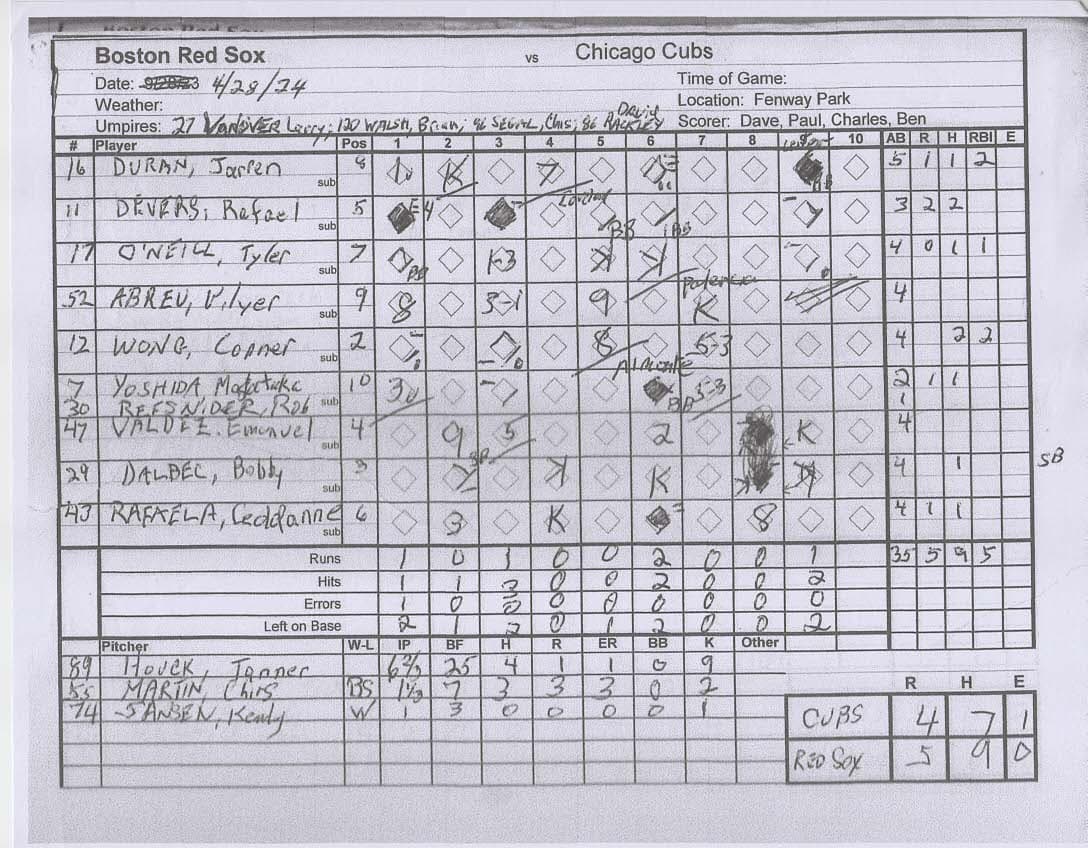 Boston Red Sox vs Chicago Cubs
Date: 4/28/24 Time of Game:
Weather: Location: Fenway Park
Umpires: 27 VANOVER Larry; 120 WALSH, Brian; 96 SEGAL, Chis; 86 David RACKLEY Scorer: Dave, Paul, Charles, Ben
# Player Pos 1 2 3 4 5 6 7 8 10 AB R H RBI E
16 DURAN, Jarren sub 8 1b K 7 5 1 1 2
11 DEVERS, Rafael sub 5 E4 BB BB 3 2 2
17 O'NEILL, Tyler sub 7 BB K-3 4 0 1 1
52 ABREU, Wilyer sub 9 8 3-1 9 K 4
12 WONG, Conner sub 2 8 5-3 4 2 2
7 YOSHIDA 10 30 BB 5-3 2 1 1
30 REFSNIDER, Rob 1
47 VALDEZ, Emanuel sub 4 9 5 2 K 4
29 DALBEC, Bobby sub 3 K K 4 1 SB
43 RAFAELA, sub 6 3 K 8 4 1 1
Runs 1 0 1 0 0 2 0 0 1 35 5 9 5
Hits 1 1 3 0 0 2 0 0 2
Errors 1 0 0 0 0 0 0 0 0
Left on Base 2 1 2 0 1 2 0 0 2
Pitcher W-L IP BF H R ER BB K Other
89 HOUCK, Tanner 6 2/3 25 4 1 1 0 9
55 MARTIN, Chris BS 1 1/3 7 3 3 3 0 2
74 JANSEN, Kenly W 1 3 0 0 0 0 1
R H E
CUBS 4 7 1
RED SOX 5 9 0